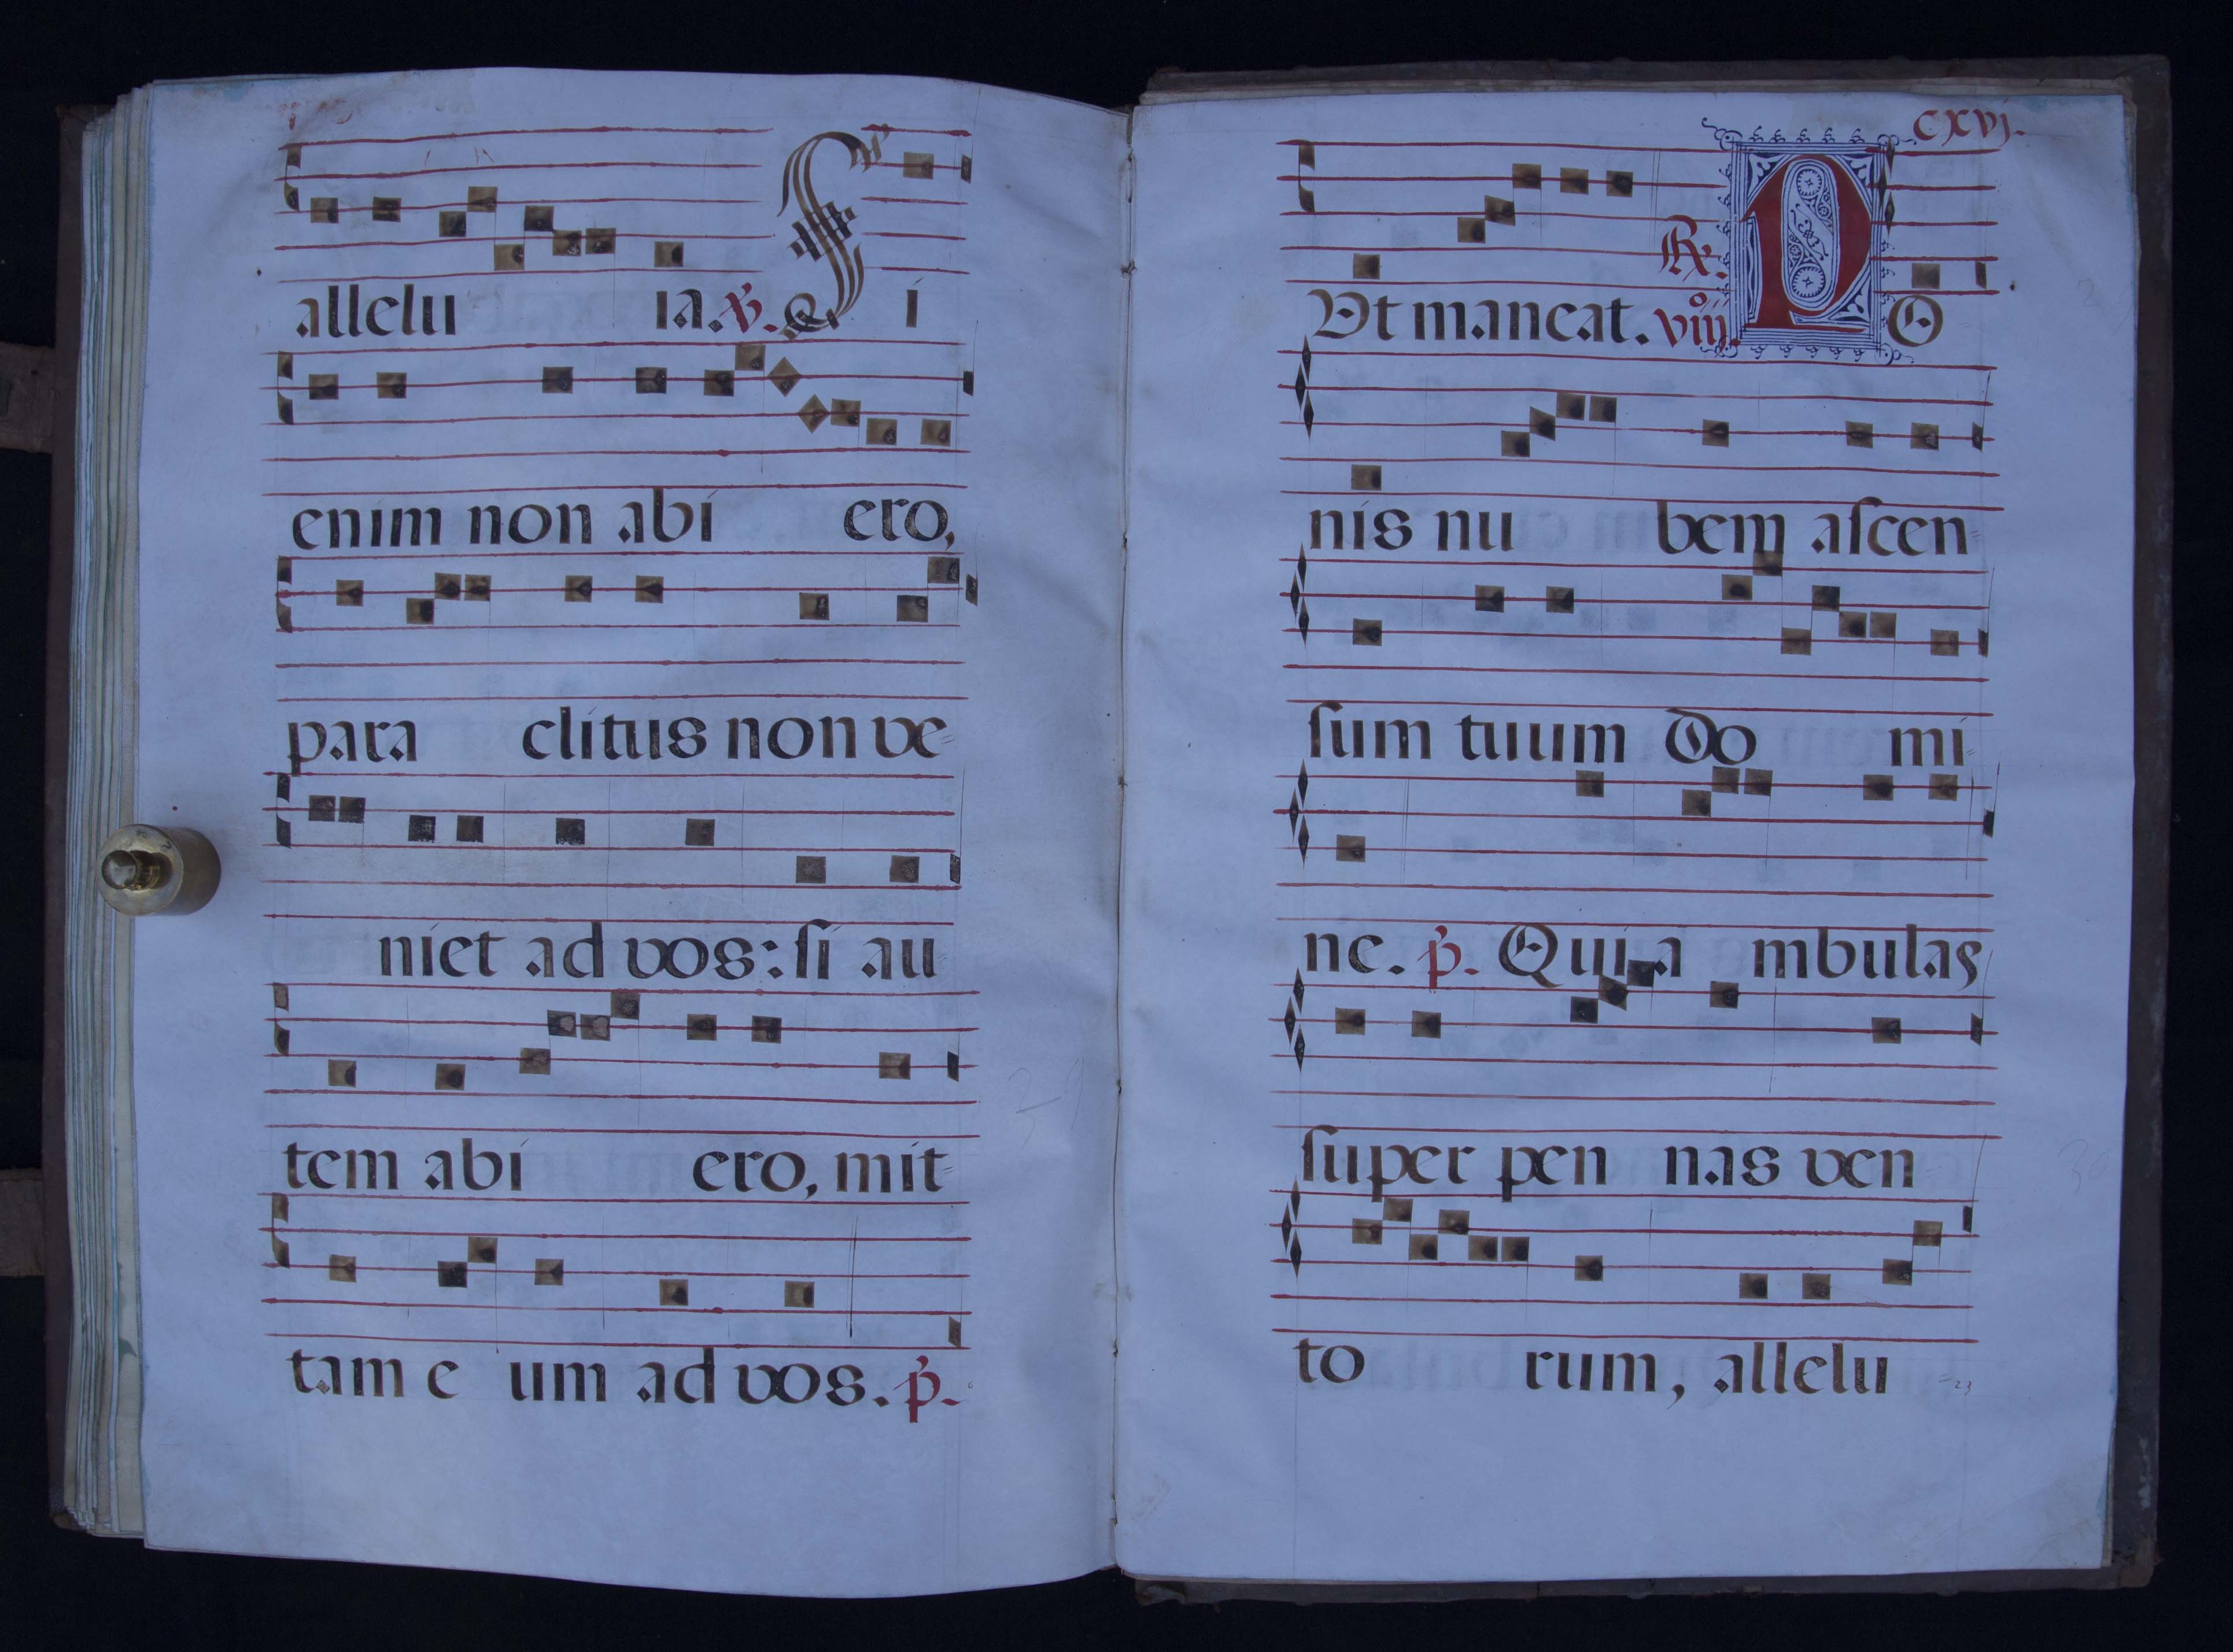 allelu ia. ℣. S i
enim non abi ero,
para clitus non ve=
niet ad vos: ſi au=
tem abi ero, mit=
tam e um ad vos. p.
CXVJ.
Ut maneat. R. viii.o P O
nis nu bem aſcen=
ſum tuum Do mi=
ne. p. Qui a mbulas
ſuper pen nas ven
to rum, allelu =